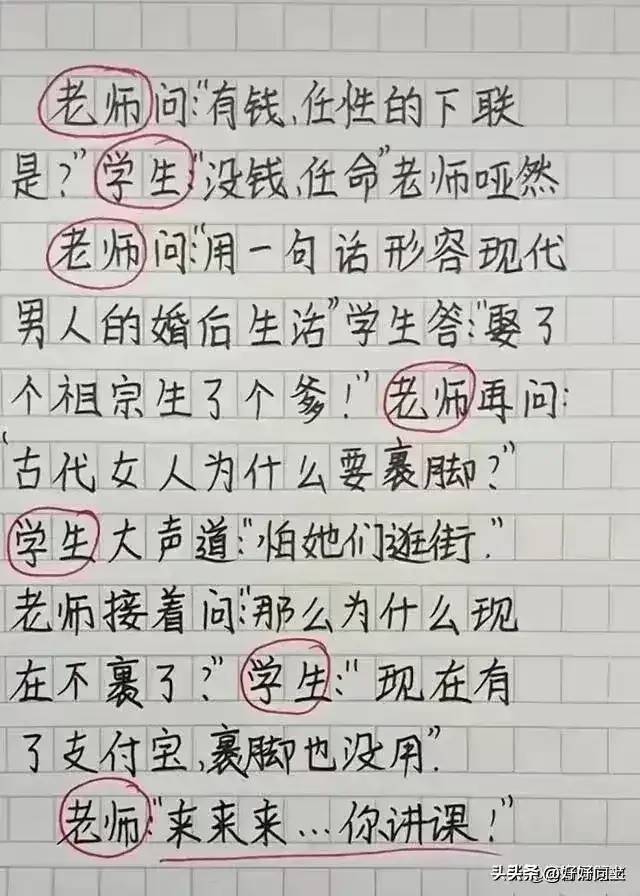 老师问:“有钱、任性的下联
是?”学生:“没钱、任命”老师哑然
老师问:“用一句话形容现代
男人的婚后生活”学生答:“娶了
个祖宗生了个爹!”老师再问:
“古代女人为什么要裹脚?”
学生大声道:“怕她们逛街.”
老师接着问:“那么为什么现
在不裹了?”学生:“现在有
了支付宝,裹脚也没用”.
老师:“来来来…你讲课!”
头条@好好问主